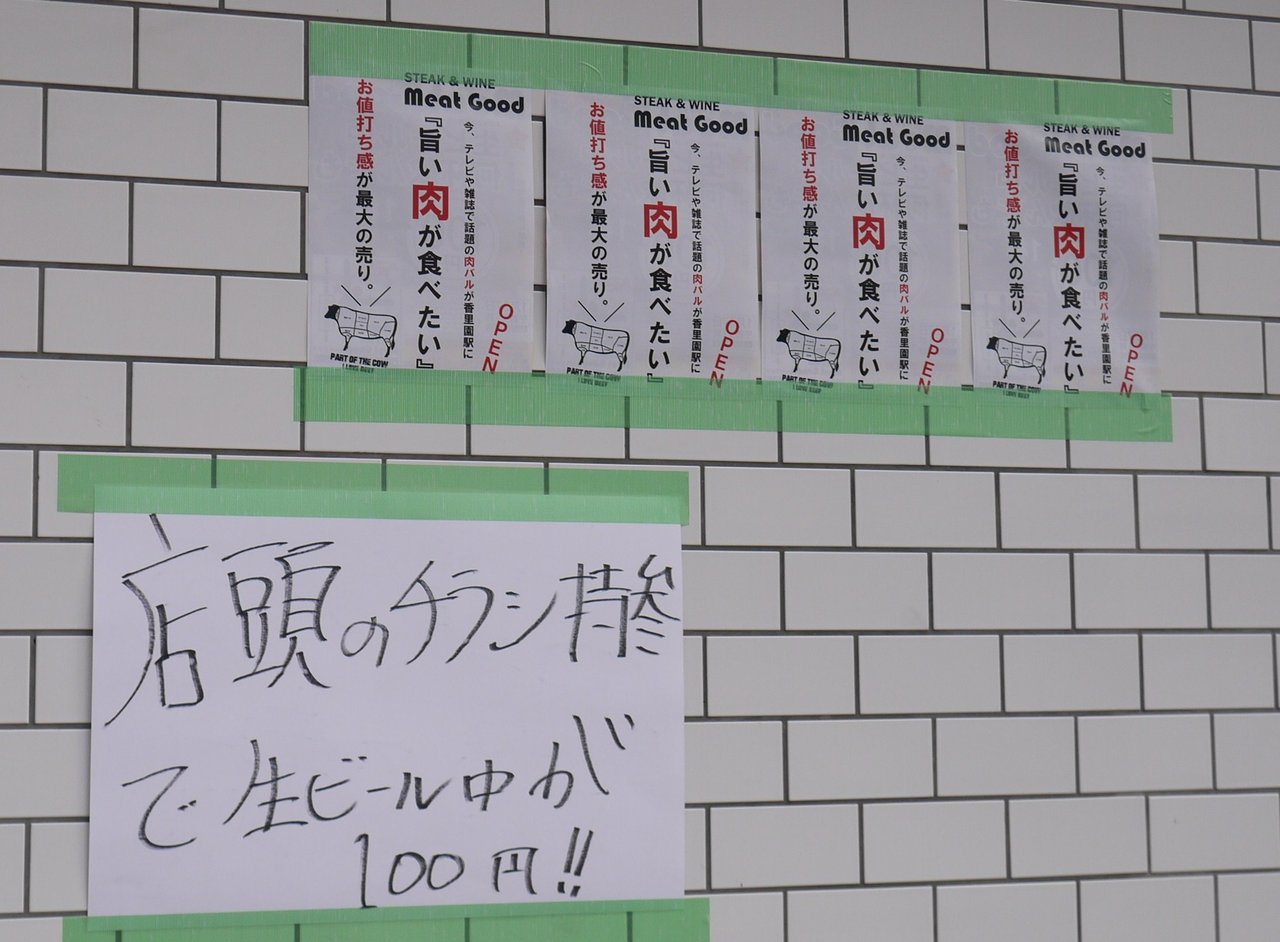 STEAK & WINE
Meat Good
今、テレビや雑誌で話題の肉バルが香里園駅に
OPEN
『旨い肉が食べたい』
お値打ち感が最大の売り。
PART OF THE COW
I LOVE BEEF
STEAK & WINE
Meat Good
今、テレビや雑誌で話題の肉バルが香里園駅に
OPEN
『旨い肉が食べたい』
お値打ち感が最大の売り。
PART OF THE COW
I LOVE BEEF
STEAK & WINE
Meat Good
今、テレビや雑誌で話題の肉バルが香里園駅に
OPEN
『旨い肉が食べたい』
お値打ち感が最大の売り。
PART OF THE COW
I LOVE BEEF
STEAK & WINE
Meat Good
今、テレビや雑誌で話題の肉バルが香里園駅に
OPEN
『旨い肉が食べたい』
お値打ち感が最大の売り。
PART OF THE COW
I LOVE BEEF
店頭のチラシ持参
で生ビール中が
100円!!